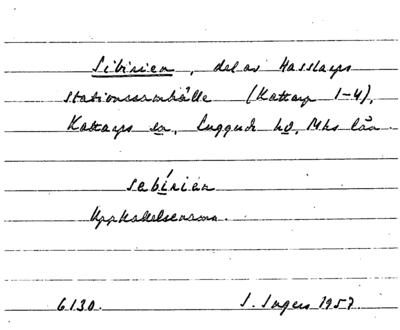 Sibirien, del av Hasslarps
stationssamhälle (Kattarp 1-4),
Kattarps sn, Luggude hd, Mhs län.
sebírien
Uppkallelsenamn.
6130. I. Ingers 1957.